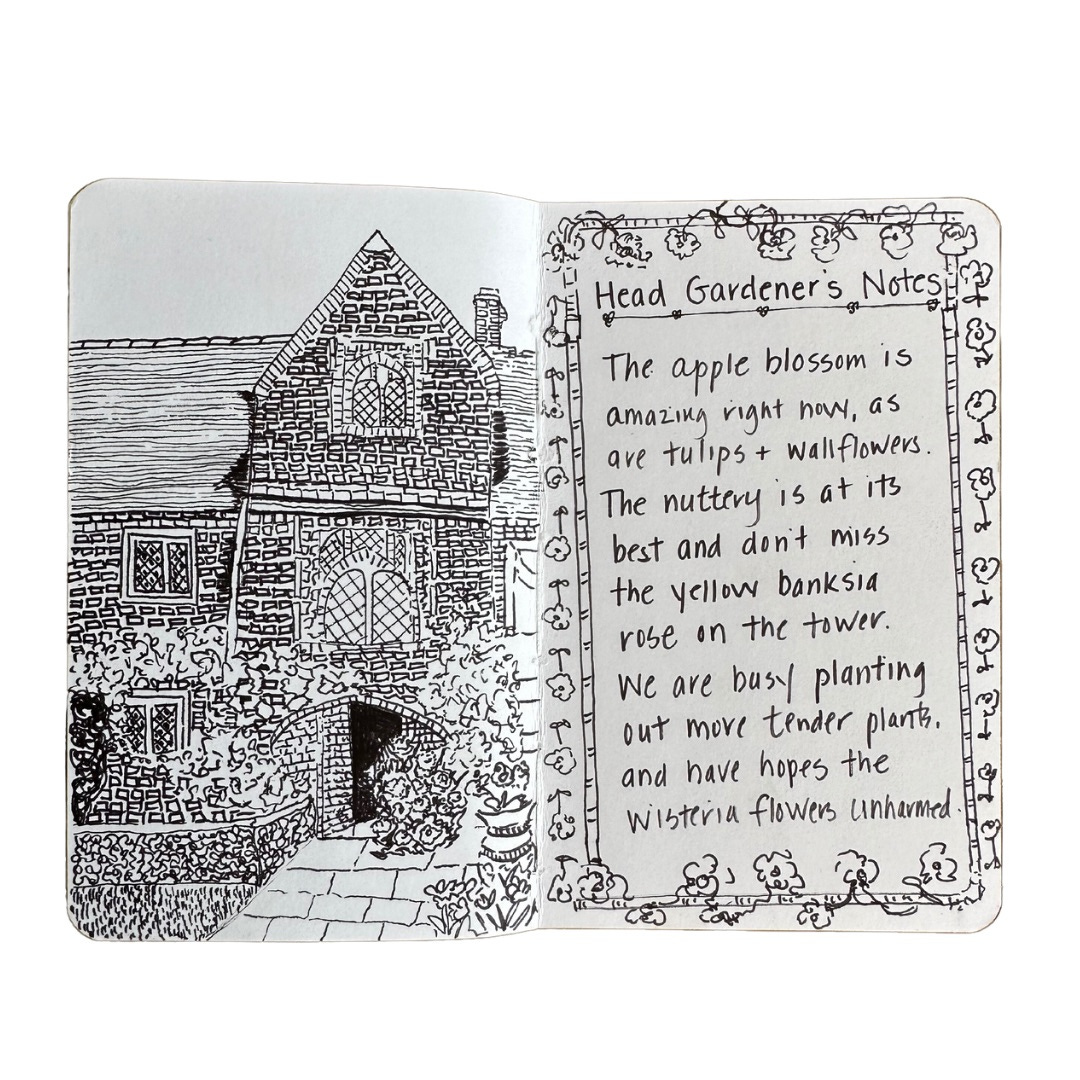 Head Gardener's Notes
The apple blossom is
amazing right now, as
are tulips + wallflowers.
The nuttery is at its
best and don't miss
the yellow banksia
rose on the tower.
We are busy planting
out more tender plants.
and have hopes the
wisteria flowers unharmed.